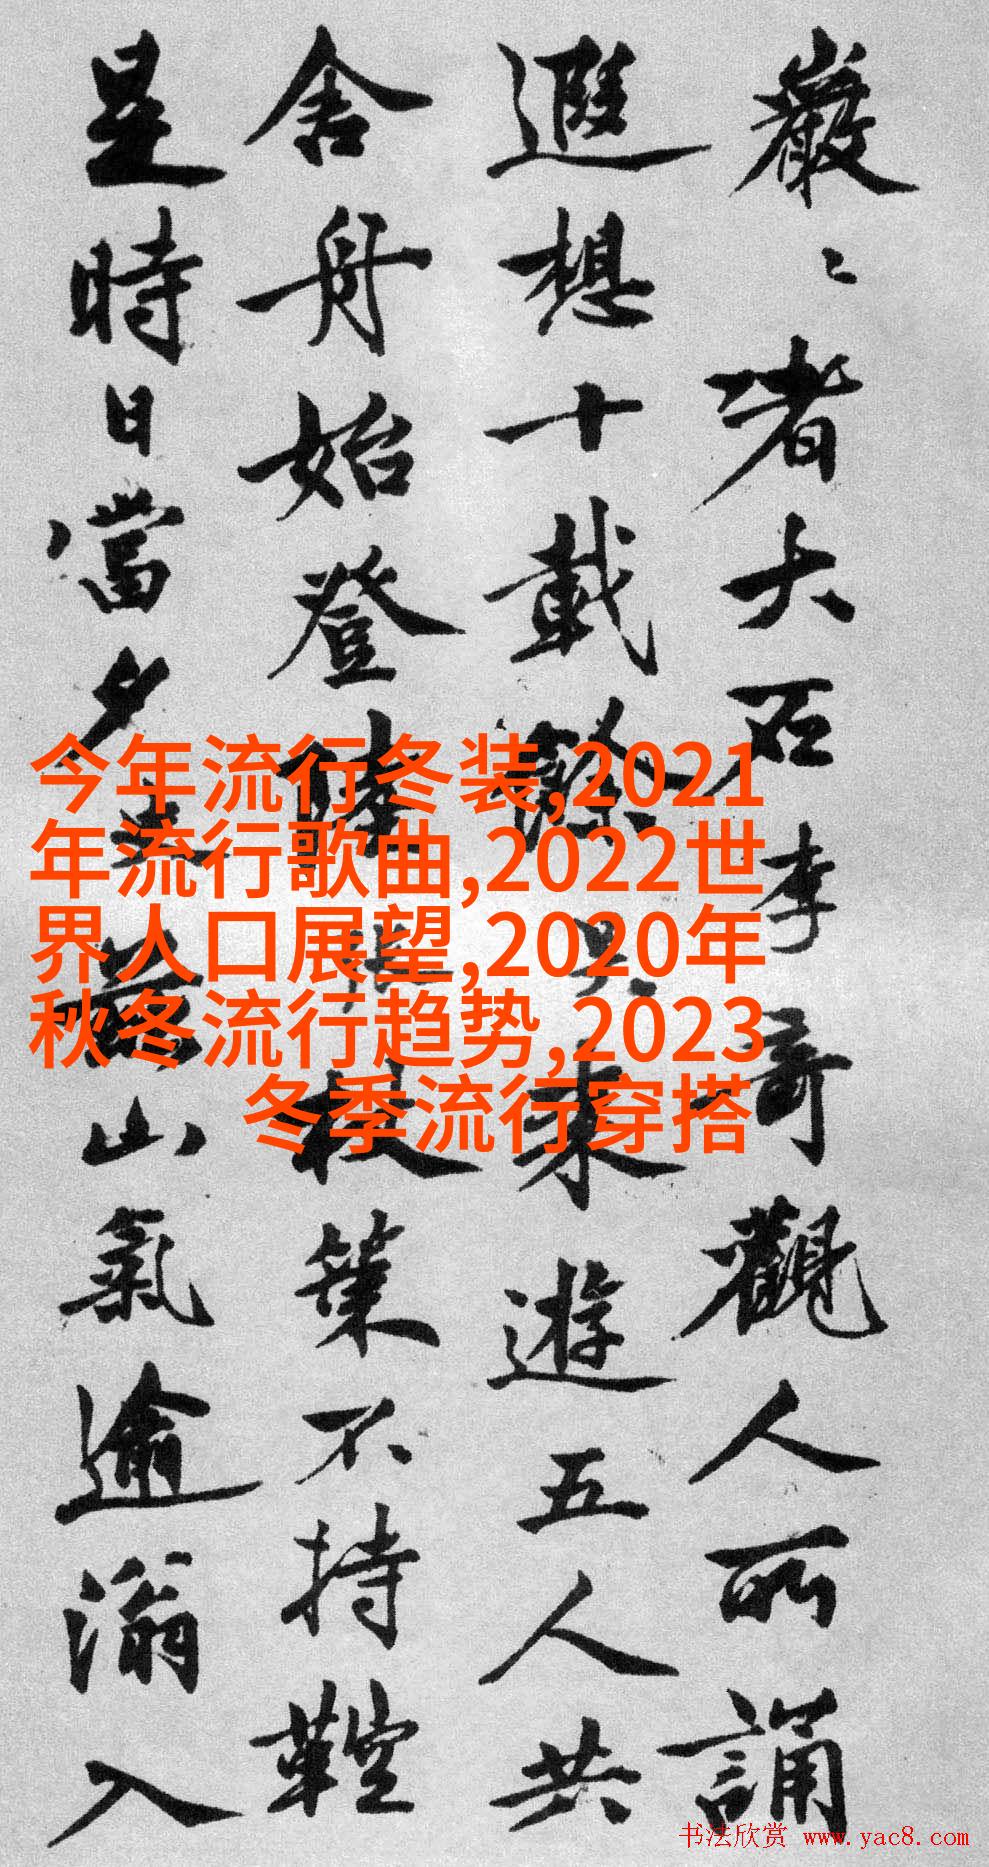 巖〻者大石李哥觀人所誦
遐想十載餘具來遊五人共
舍舟始登陸杖策不持鞚
是時日當夕蒼山氣逾滃入
今年流行冬装,2021
年流行歌曲,2022世
界人口展望,2020年
秋冬流行趋势,2023
冬季流行穿搭
书法欣赏 www.yac8.com